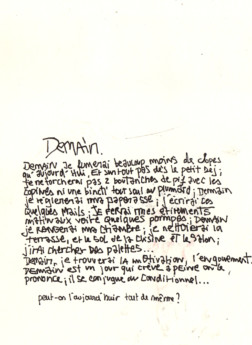 Demain.
Demain je fumerai beaucoup moins de clopes
qu'aujourd'hui, et surtout pas dès le petit dej;
je ne torcherai pas 2 boutanches de pif avec les
copines ni une binch' tout seul au plumard; Demain
je réglerai ma paperasse; j'écrirai ces
quelques mails; je ferai mes étirements
matinaux voire quelques pompes; Demain
je rangerai ma chambre; je nettoierai la
terrasse, et le sol de la cuisine et le salon;
j'irai chercher des palettes...
Demain, je trouverai la motivation, l'engouement,
Demain est un jour qui crève à peine on le
prononce; il se conjugue au conditionnel...
peut-on l'aujourd'huir tout de même?